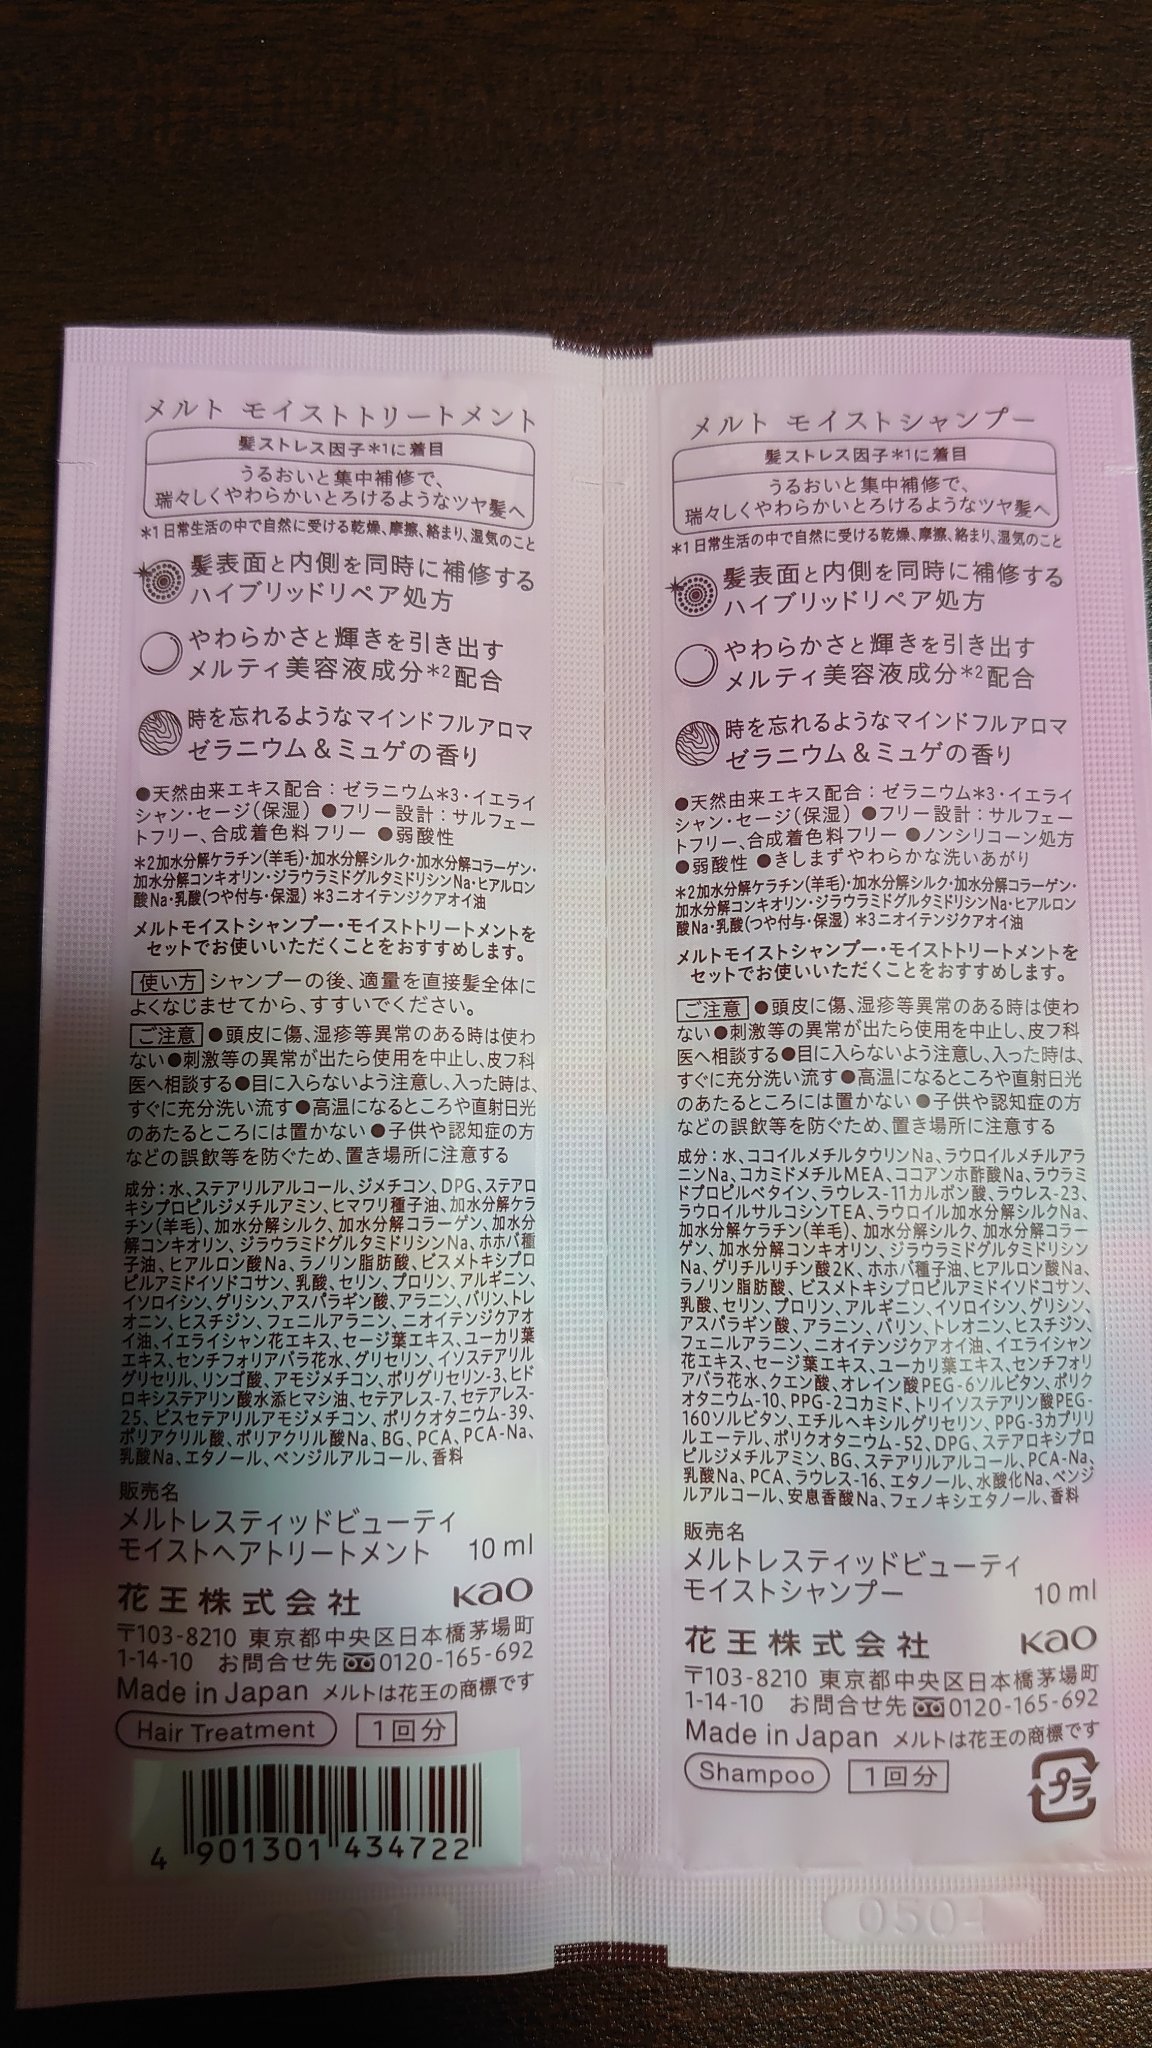 メルト モイストトリートメント
髪ストレス因子*1に着目
うるおいと集中補修で、
瑞々しくやわらかいとろけるようなツヤ髪へ
*1日常生活の中で自然に受ける乾燥、摩擦、絡まり、湿気のこと
髪表面と内側を同時に補修する
ハイブリッドリペア処方
やわらかさと輝きを引き出す
メルティ美容液成分*2配合
時を忘れるようなマインドフルアロマ
ゼラニウム&ミュゲの香り
●天然由来エキス配合：ゼラニウム*3・イエライ
シャン・セージ(保湿) ●フリー設計：サルフェー
トフリー、合成着色料フリー ●弱酸性
*2加水分解ケラチン(羊毛)・加水分解シルク・加水分解コラーゲン・
加水分解コンキオリン・ジラウラミドグルタミドリシンNa・ヒアルロン
酸Na・乳酸(つや付与・保湿) *3ニオイテンジクアオイ油
メルトモイストシャンプー・モイストトリートメントを
セットでお使いいただくことをおすすめします。
使い方 シャンプーの後、適量を直接髪全体に
よくなじませてから、すすいでください。
ご注意 ●頭皮に傷、湿疹等異常のある時は使わ
ない●刺激等の異常が出たら使用を中止し、皮フ科
医へ相談する●目に入らないよう注意し、入った時は、
すぐに充分洗い流す●高温になるところや直射日光
のあたるところには置かない ●子供や認知症の方
などの誤飲等を防ぐため、置き場所に注意する
成分：水、ステアリルアルコール、ジメチコン、DPG、ステアロ
キシプロピルジメチルアミン、ヒマワリ種子油、加水分解ケラ
チン(羊毛)、加水分解シルク、加水分解コラーゲン、加水分
解コンキオリン、ジラウラミドグルタミドリシンNa、ホホバ種
子油、ヒアルロン酸Na、ラノリン脂肪酸、ビスメトキシプロ
ピルアミドイソドコサン、乳酸、セリン、プロリン、アルギニン、
イソロイシン、グリシン、アスパラギン酸、アラニン、バリン、トレ
オニン、ヒスチジン、フェニルアラニン、ニオイテンジクアオ
イ油、イエライシャン花エキス、セージ葉エキス、ユーカリ葉
エキス、センチフォリアバラ花水、グリセリン、イソステアリル
グリセリル、リンゴ酸、アモジメチコン、ポリグリセリン-3、ヒド
ロキシステアリン酸水添ヒマシ油、セテアレス-7、セテアレス-
25、ビスセテアリルアモジメチコン、ポリクオタニウム-39、
ポリアクリル酸、ポリアクリル酸Na、BG、PCA、PCA-Na、
乳酸Na、エタノール、ベンジルアルコール、香料
販売名
メルトレスティッドビューティ
モイストヘアトリートメント 10 ml
花王株式会社 Kao
〒103-8210 東京都中央区日本橋茅場町
1-14-10 お問合せ先 0120-165-692
Made in Japan メルトは花王の商標です
Hair Treatment 1回分
4 901301 434722
メルト モイストシャンプー
髪ストレス因子*1に着目
うるおいと集中補修で、
瑞々しくやわらかいとろけるようなツヤ髪へ
*1日常生活の中で自然に受ける乾燥、摩擦、絡まり、湿気のこと
髪表面と内側を同時に補修する
ハイブリッドリペア処方
やわらかさと輝きを引き出す
メルティ美容液成分*2配合
時を忘れるようなマインドフルアロマ
ゼラニウム&ミュゲの香り
●天然由来エキス配合：ゼラニウム*3・イエライ
シャン・セージ(保湿) ●フリー設計：サルフェー
トフリー、合成着色料フリー ●ノンシリコーン処方
●弱酸性 ●きしまずやわらかな洗いあがり
*2加水分解ケラチン(羊毛)・加水分解シルク・加水分解コラーゲン・
加水分解コンキオリン・ジラウラミドグルタミドリシンNa・ヒアルロン
酸Na・乳酸(つや付与・保湿) *3ニオイテンジクアオイ油
メルトモイストシャンプー・モイストトリートメントを
セットでお使いいただくことをおすすめします。
ご注意 ●頭皮に傷、湿疹等異常のある時は使わ
ない●刺激等の異常が出たら使用を中止し、皮フ科
医へ相談する●目に入らないよう注意し、入った時は、
すぐに充分洗い流す●高温になるところや直射日光
のあたるところには置かない ●子供や認知症の方
などの誤飲等を防ぐため、置き場所に注意する
成分：水、ココイルメチルタウリンNa、ラウロイルメチルアラ
ニンNa、コカミドメチルMEA、ココアンホ酢酸Na、ラウラミ
ドプロピルベタイン、ラウレス-11カルボン酸、ラウレス-23、
ラウロイルサルコシンTEA、ラウロイル加水分解シルクNa、
加水分解ケラチン(羊毛)、加水分解シルク、加水分解コラー
ゲン、加水分解コンキオリン、ジラウラミドグルタミドリシン
Na、グリチルリチン酸2K、ホホバ種子油、ヒアルロン酸Na、
ラノリン脂肪酸、ビスメトキシプロピルアミドイソドコサン、
乳酸、セリン、プロリン、アルギニン、イソロイシン、グリシン、
アスパラギン酸、アラニン、バリン、トレオニン、ヒスチジン、
フェニルアラニン、ニオイテンジクアオイ油、イエライシャン
花エキス、セージ葉エキス、ユーカリ葉エキス、センチフォリ
アバラ花水、クエン酸、オレイン酸PEG-6ソルビタン、ポリク
オタニウム-10、PPG-2コカミド、トリイソステアリン酸PEG-
160ソルビタン、エチルヘキシルグリセリン、PPG-3カプリリ
ルエーテル、ポリクオタニウム-52、DPG、ステアロキシプロ
ピルジメチルアミン、BG、ステアリルアルコール、PCA-Na、
乳酸Na、PCA、ラウレス-16、エタノール、水酸化Na、ベンジ
ルアルコール、安息香酸Na、フェノキシエタノール、香料
販売名
メルトレスティッドビューティ
モイストシャンプー 10 ml
花王株式会社 Kao
〒103-8210 東京都中央区日本橋茅場町
1-14-10 お問合せ先 0120-165-692
Made in Japan メルトは花王の商標です
Shampoo 1回分
プラ